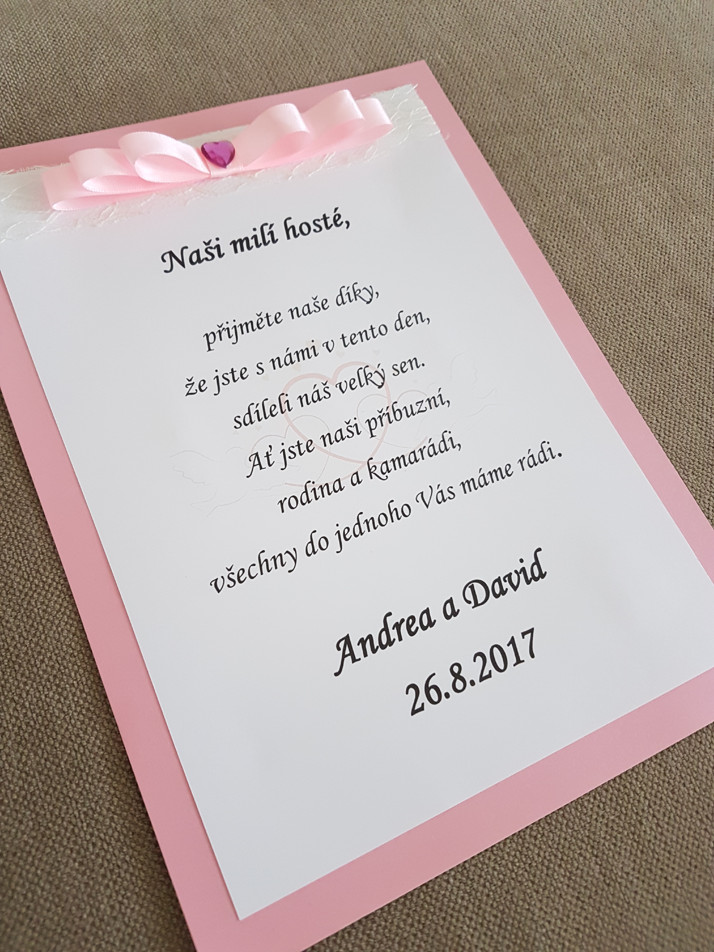 Naši milí hosté,
přijměte naše díky,
že jste s námi v tento den,
sdíleli náš velký sen.
Ať jste naši příbuzní,
rodina a kamarádi,
všechny do jednoho Vás máme rádi.
Andrea a David
26.8.2017